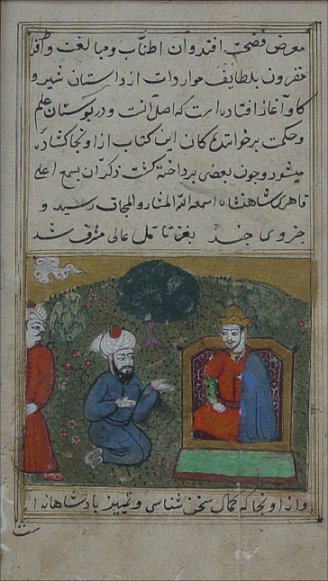 معرض فضیحت افتد وان اطناب و مبالغت
مقرون بلطایف موارد ات از داستان شیر و
کاو آغاز افتاده است که اصل آنست و در بوستان علم
و حکمت بر خوانندکان این کتاب از اونجا کشاده
میشود و چون بعضی پرداخته کشت ذکر آن بسمع اعلی
قاهری شاهنشاه اسمعه الله المسار و المحاب رسید و
جزوی چند بعز تامل عالی مشرف شد
و از اونجا که کمال سخن شناسی و تمییز بادشاهانه ا